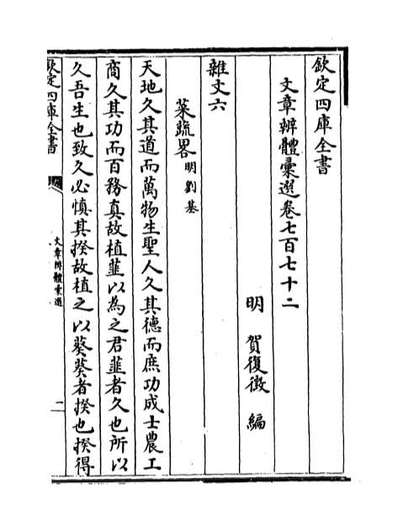 欽定四庫全書
文章辨體彙選卷七百七十二
明 賀復徵 編
雜文六
菜蔬畧明劉基
天地久其道而萬物生聖人久其德而庶功成士農工
商久其功而百務真故植韮以為之君韮者久也所以
久吾生也致久必慎其揆故植之以葵葵者揆也揆得
欽定四庫全書
文章辨體彙選
二